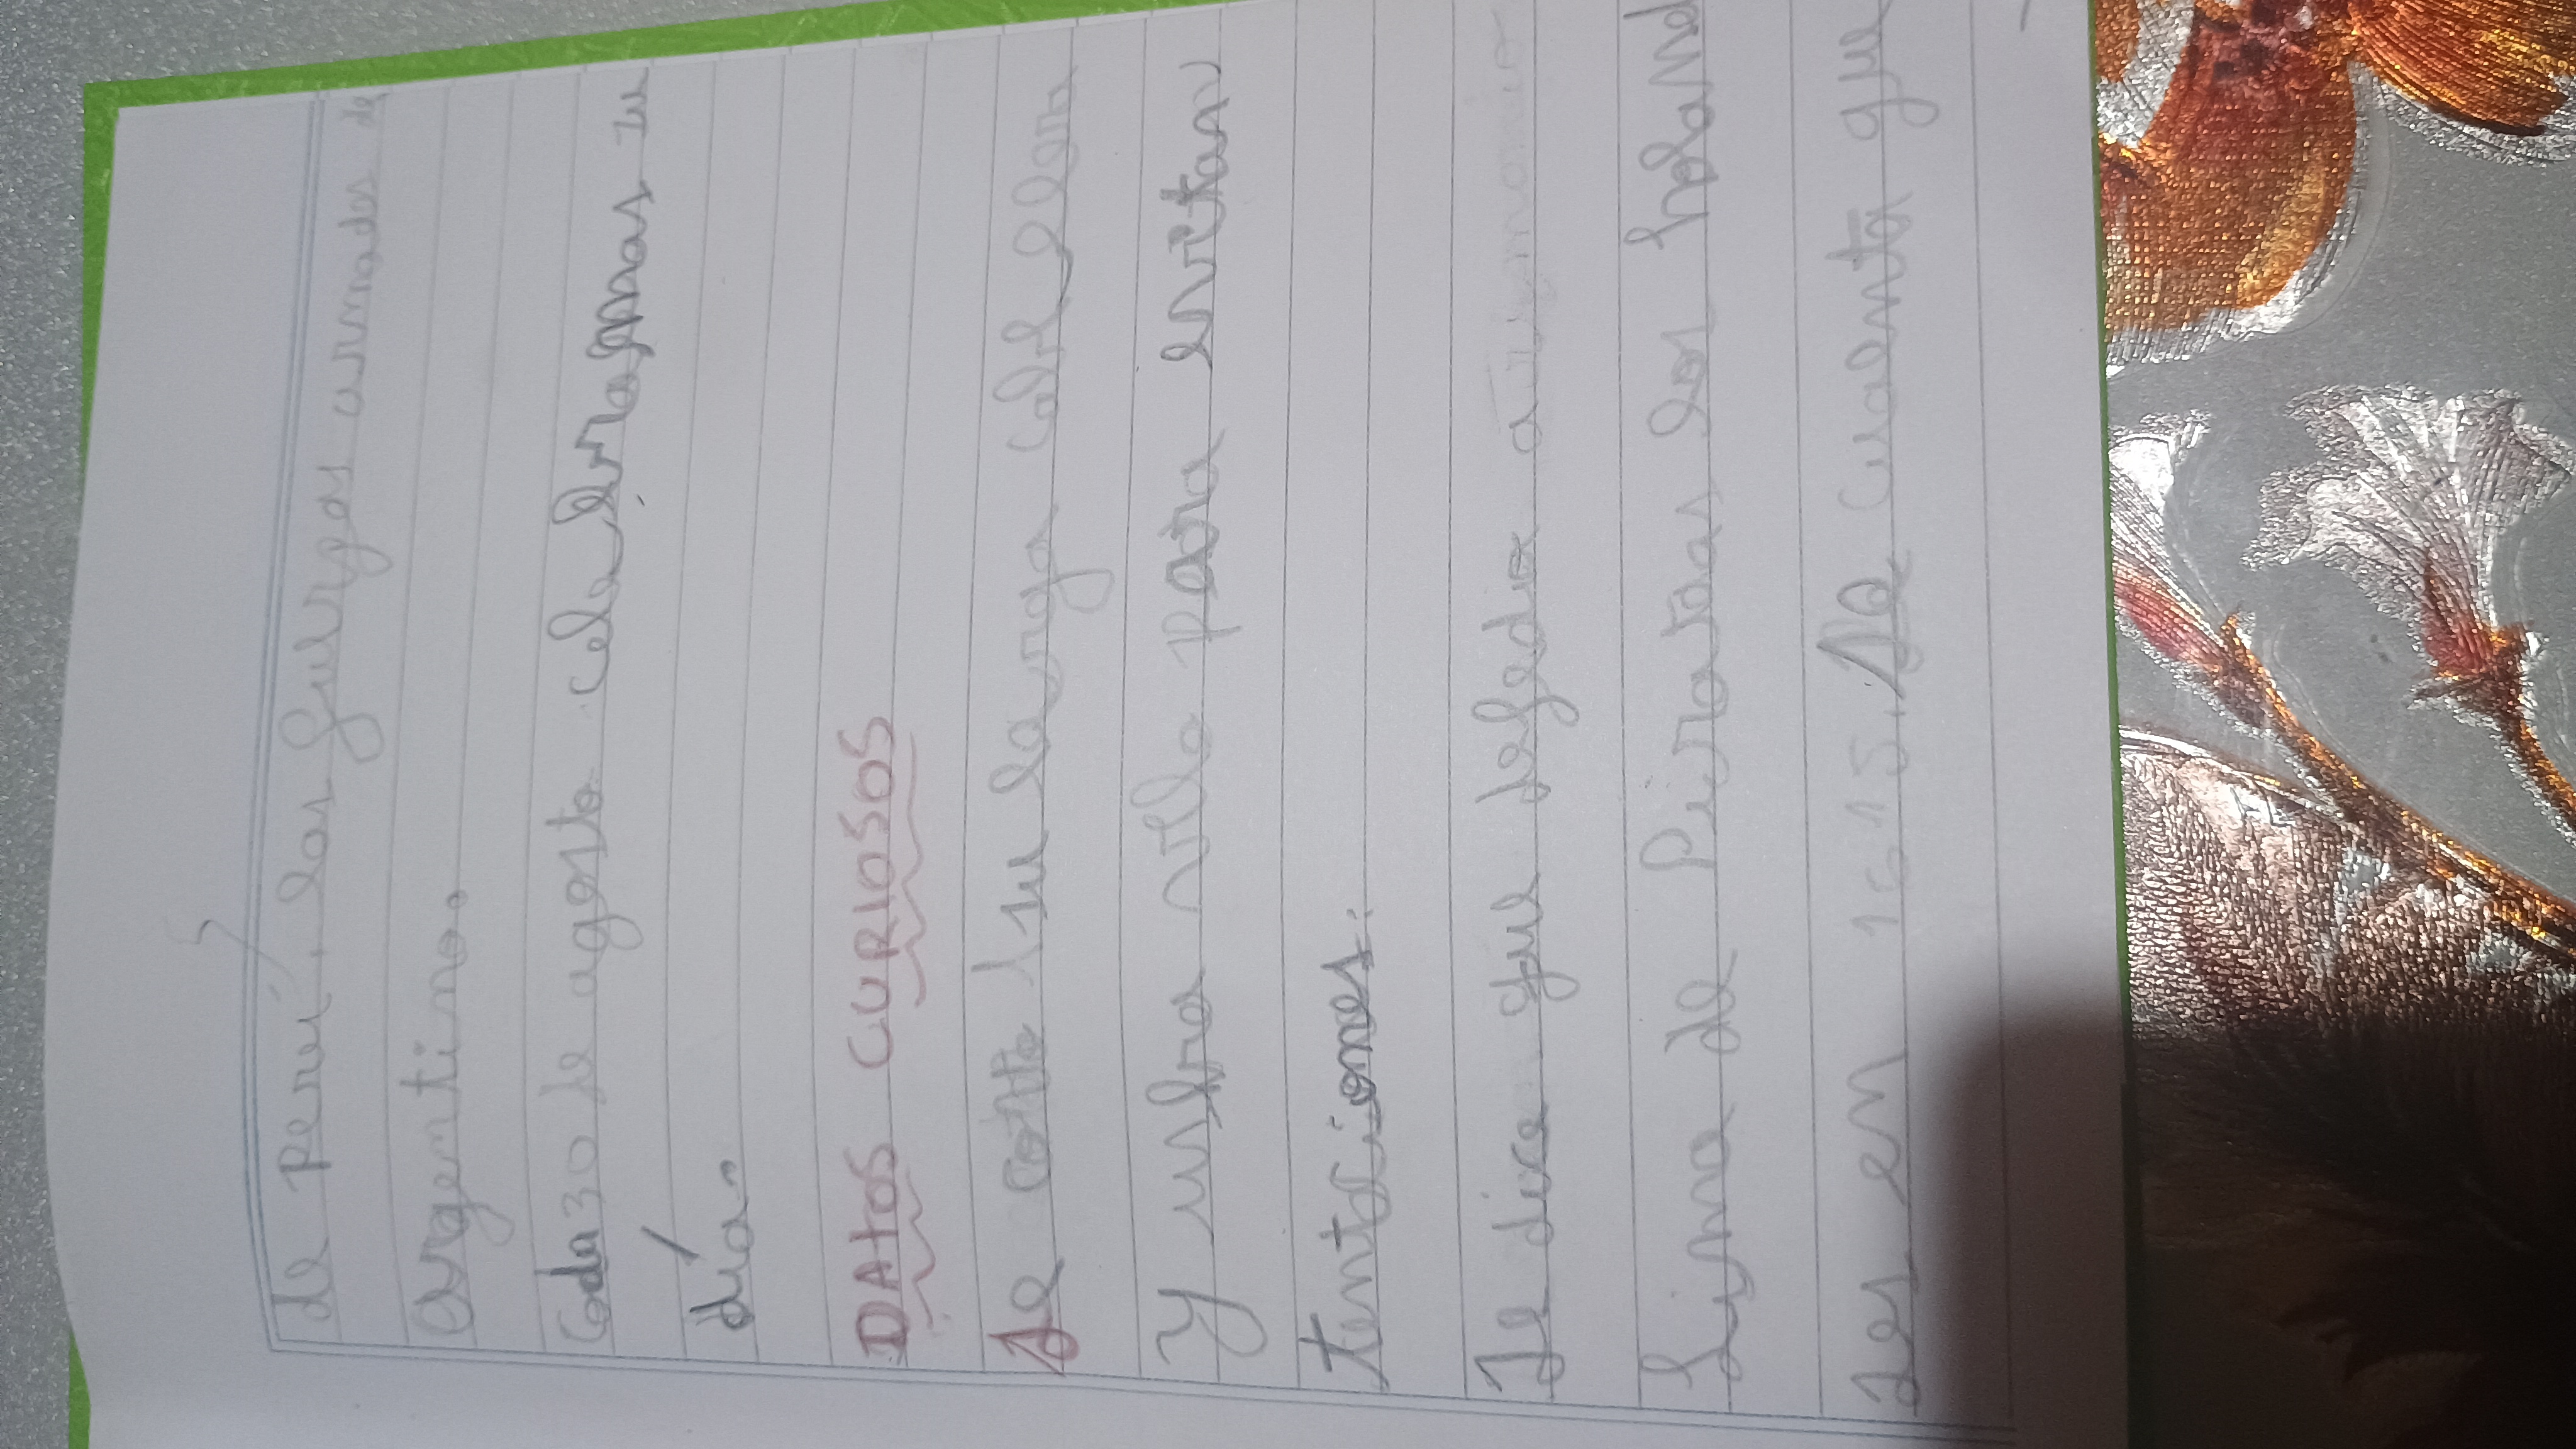 de perú, los fuerzas armadas de
argentina.
Cada 30 de agosto celebramos su
día.
DATOS CURIOSOS
Se corto su larga cabellera
y usba velo para evitar
tentaciones.
Se dice que defedio a su
Lima de Piratas los holand
ses en 1615. Se cuenta que